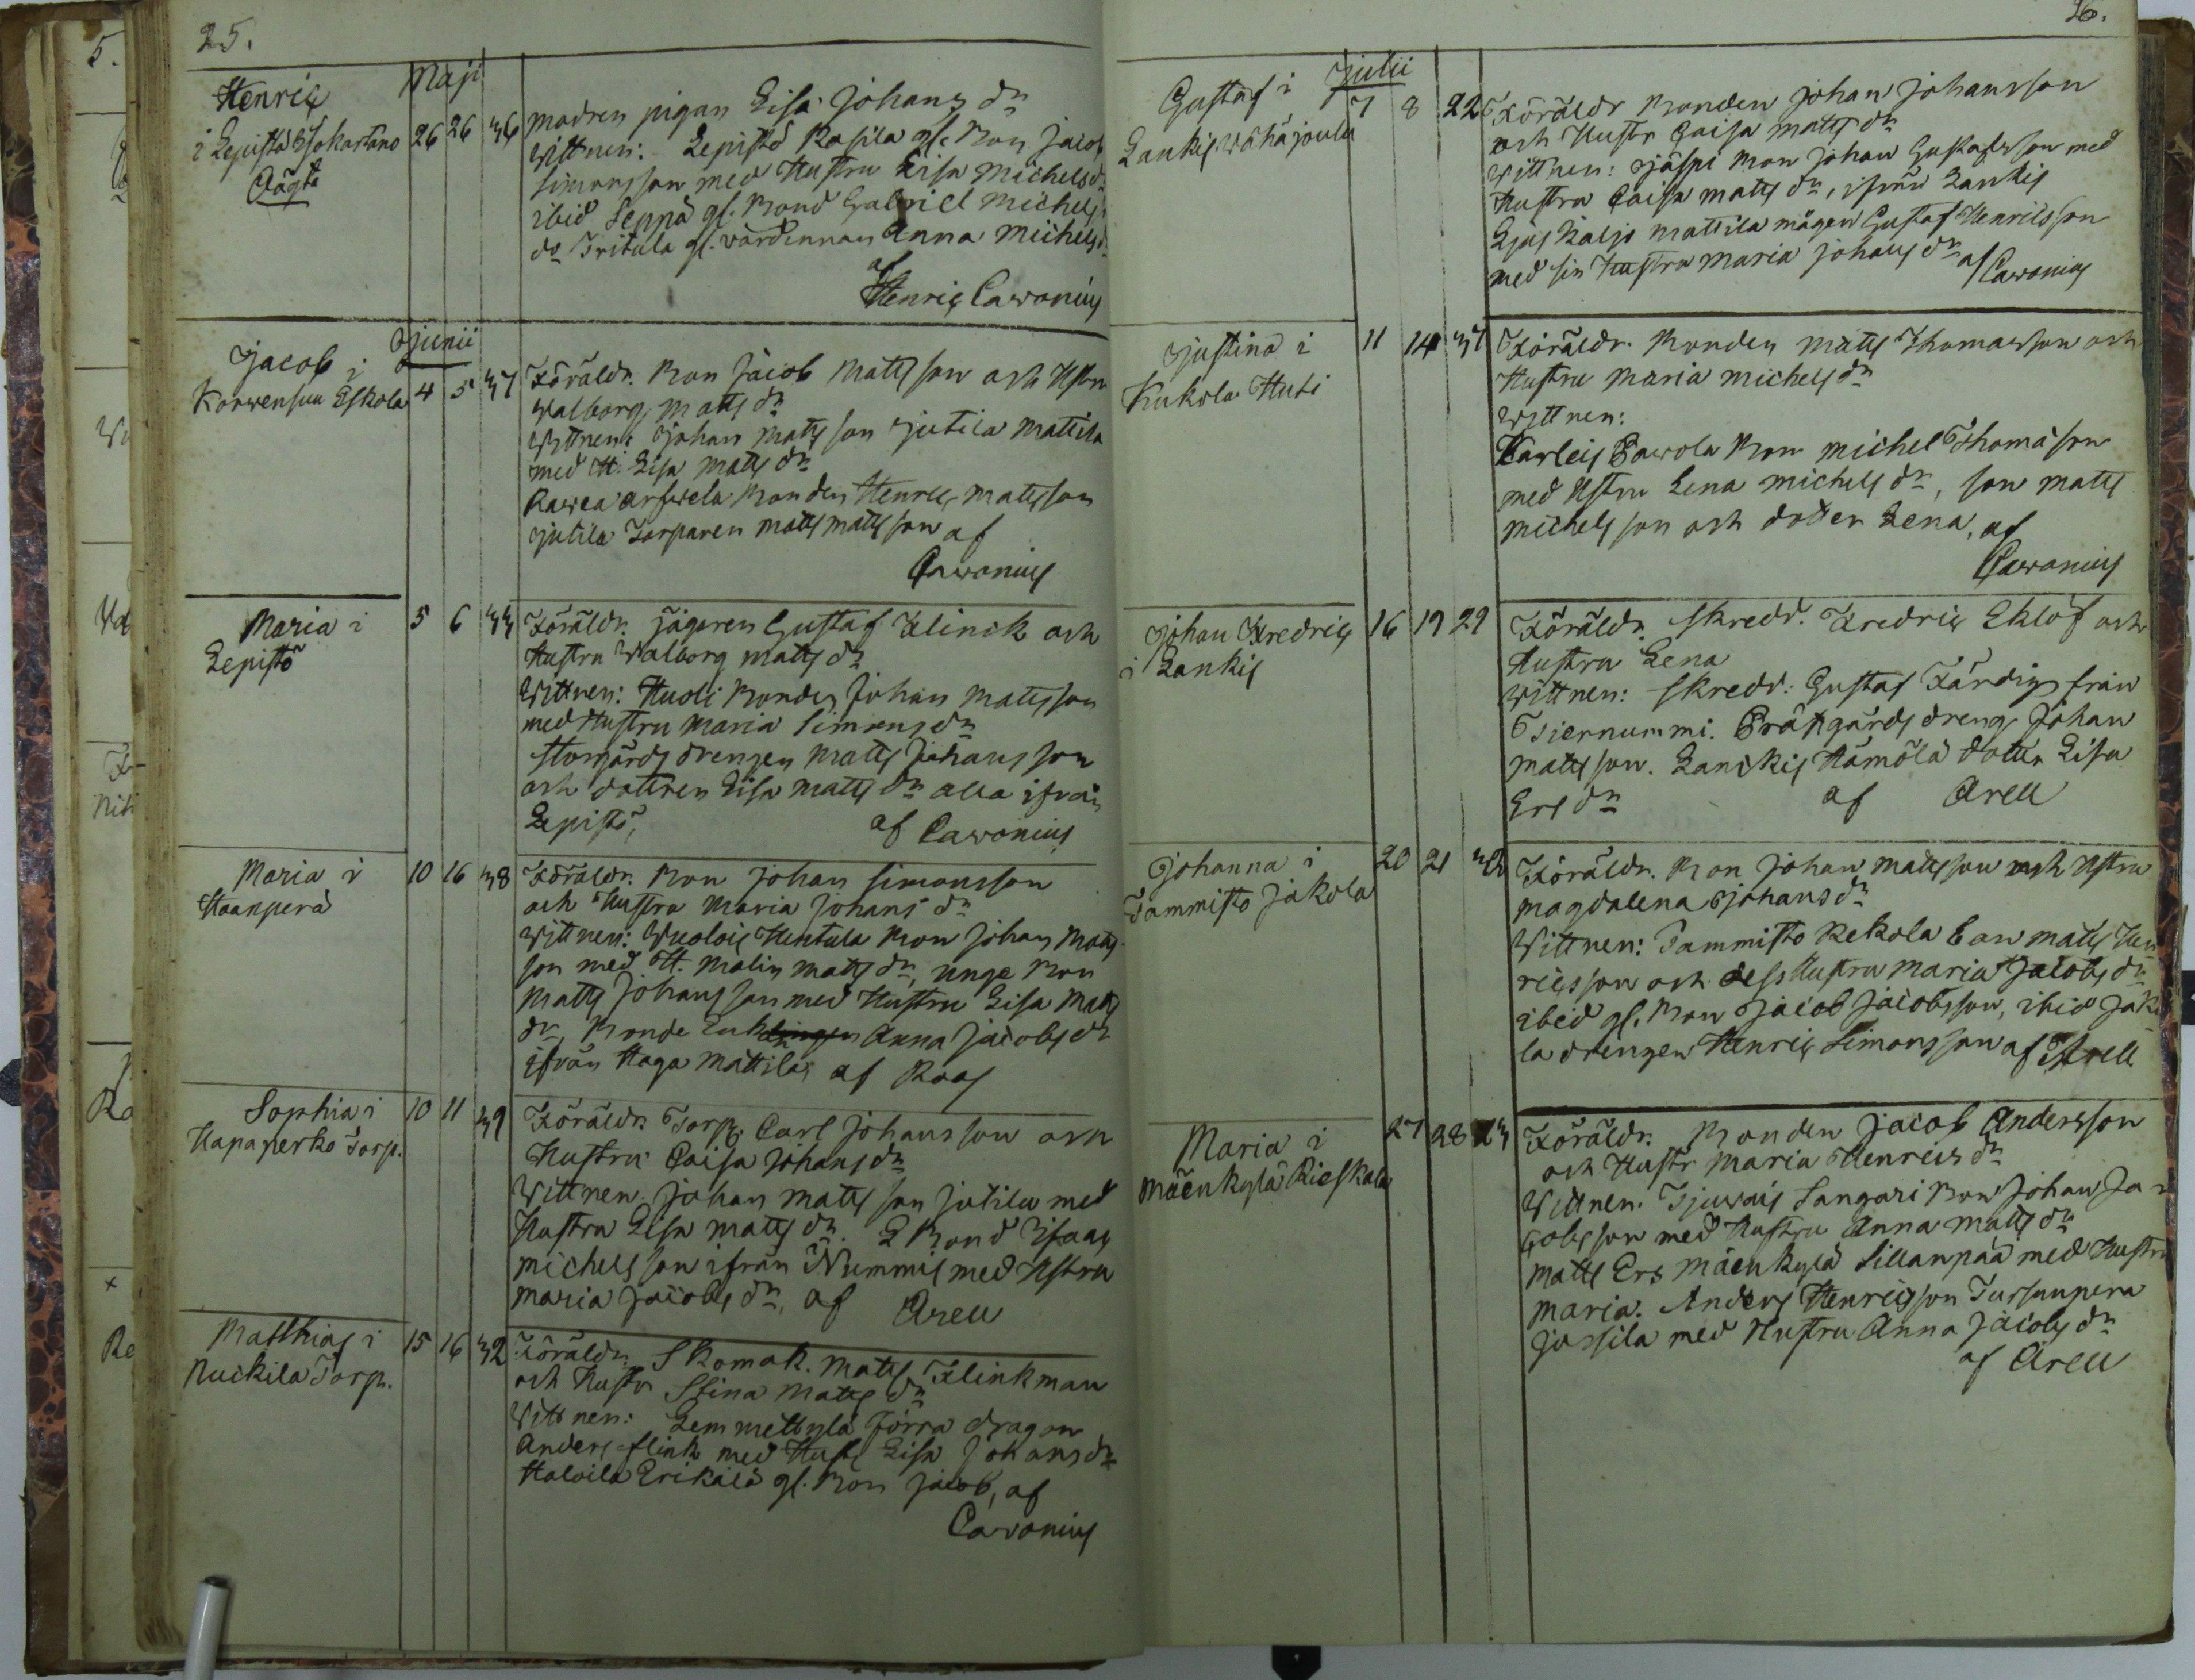 25.
Maji
Henric
i Lepistö Isokartano
Oägta
26 26 36
modren pigan Lisa Johans dr
Wittnen: Lepistö Rasila gl. Bon Jacob
Simonsson med Hustru Lisa Michelsd
ibid Seppä gl. Bond Gabriel Michels
do Tritula gl. värdinnan Anna Michelsd
af
Henric Cavonius
Junii
Jacob i
Korvensuu Eskola
4 5 37
Föräldr. Bon Jacob Matts son och Hstru
Walborg Matts dr
Wittnen: Johan Matts son Jutila Mattila
med H. Lisa Matts dr
Rawea Bonden Henric Mattsson
Jutila Torparen Matts Matts son af
Cavonius
Maria i
Lepistö
5 6 33
Föräldr. Jägaren Gustaf Klinck och
Hustru Walborg Matts dr
Wittnen: Huoli Bonden Johan Mattsson
med Hustru Maria Simons dr
Storgårds drengen Matts Johans son
och dottren Lisa Matts dr alla ifrån
Lepistö, af Cavonius
Maria i
Haanperä
10 16 38
Föräldr. Bon Johan Simonsson
och Hustru Maria Johans dr
Wittnen: Wuolois Hentula Bon Johan Matts
son med H. Malin Matts dr, unge Bon
Matts Johans son med Hustru Lisa Matts
dr, Bonde Enk Anna Jacobs dr
ifrån Haga Mattila af Roos
Sophia i
Haapaperko Torp.
10 11 39
Föräldr. Torp. Carl Johansson och
Hustru Caisa Johans dr
Wittnen: Johan Matts son Jutila med
Hustru Lisa Matts dr. L Bond Isaac
Michels son ifrån Nummis med Hstru
Maria Jacobs dr, af Arell
Matthias i
Nuckila Torp.
15 16 32
Föräldr. Skomak. Matts Klinkman
och Hustr Stina Matts dr
Wittnen: Lemmettylä förra dragon
Anders Flink med Hust Lisa Johansdr
Haloila Erikälä gl. Bon Jacob, af
Cavonius
26.
Julii
Gustaf i
Lankis Wähäjoula
7 8 22
Föräldr Bonden Johan Johansson
och Hustr Caisa Matts dr
Wittnen: Jäspi Bon Johan Gustafsson med
Hustru Caisa Matts dr, ifrån Lankis
Mattila mågen Gustaf Henricsson
med sin Hustru Maria Johans dr af
Cavonius
Justina i
Kukola Huti
11 14 37
Föräldr. Bonden Matts Thomasson och
Hustru Maria Michels dr
Wittnen:
Karleis Pawola Bon Michel Thomasson
med Hstru Lena Michels dr, son Matts
Michels son och dotter Lena, af
Cavonius
Johan Fredric
i Lankis
16 19 29
Föräldr. Skredd. Fredric Eklöf och
Hustru Lena
Wittnen: Skredd: Gustaf Färdig från
Tiernummi. Prästgårds dreng Johan
Matts son. Lanckis Hämölä dotter Lisa
Ers dr af Arell
Johanna i
Tammisto Jakola
20 21
Föräldr. Bon Johan Mattsson och Hstru
Magdalena Johansdr
Wittnen: Tammisto Rekola Bon Matts Hen
ricsson och dess Hustru Maria Jacobs dr
ibid gl. Bon Jacob Jacobsson, ibid Jako
la drengen Henric Simonsson af Arell
Maria i
Mäenkylä Rieskala
27 28 23
Föräldr. Bonden Jacob Andersson
och Hustr Maria Henrics dr
Wittnen: Sangari Bon Johan Ja
cobsson med Hustru Anna Matts dr
Matts Ers Mäenkylä Sillanpää med Hustru
Maria. Anders Henricsson Tursunpera
Jussila med Hustru Anna Jacobs dr
af Arell